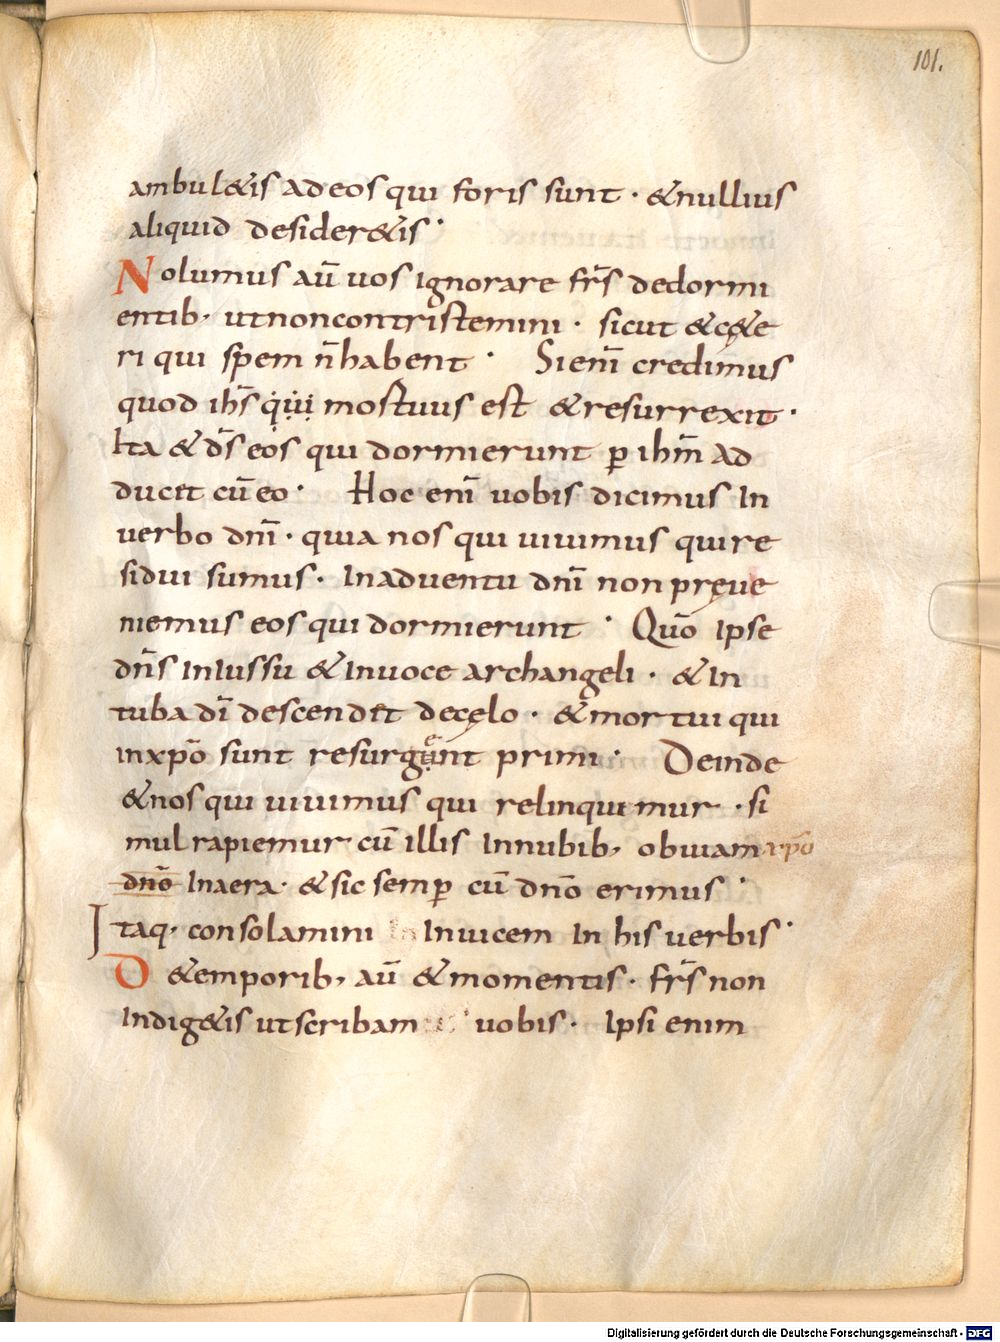 101.
ambul&is adeos qui foris sunt · &nullius
aliquid desider&is ·
Nolumus aū uos ignorare fr̄s dedormi
entib; utnoncontristemini · sicut &cę&e
ri qui spem n̄ habent · Si enī credimus
quod ih̄s mostuus est &resurrexit ·
Ita & d̄s eos qui dormierunt ꝑ ih̄m ad
ducet cū eo · Hoc enī uobis dicimus In
uerbo dn̄i · quia nos qui uiuimus quire
sidui sumus · Inaduentu dn̄i non pręue
niemus eos qui dormierunt · Quō Ipse
dn̄s InIussu & Inuoce archangeli · & In
tuba dī descendet decęlo · &mortui qui
inxpō sunt resurgent primi · Deinde
&nos qui uiuimus qui relinquimur · si
mul rapiemur cū illis Innubib; obuiam xpō
dn̄o Inaera · & sic semꝑ cū dn̄o erimus ·
Itaq; consolamini Inuicem In his uerbis ·
D &emporib; aū &momentis · fr̄s non
Indig&is utscribam uobis · Ipsi enim
Digitalisierung gefördert durch die Deutsche Forschungsgemeinschaft - DFG